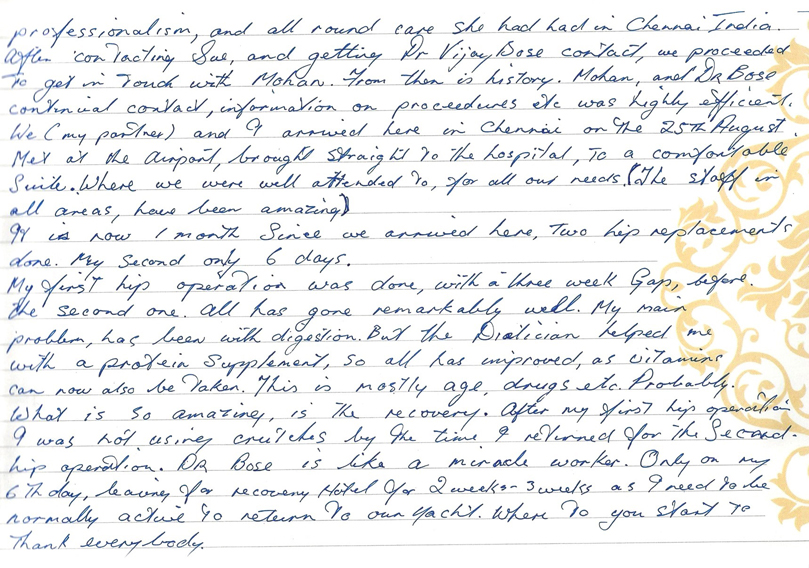 professionalism, and all round care she had had in Chennai India.
After contacting Sue, and getting Dr Vijay Bose contact, we proceeded
to get in touch with Mohan. From then is history. Mohan, and DR Bose
continual contact, information on proceedures etc was highly efficient.
We (my partner) and I arrived here in Chennai on the 25th August.
Met at the airport, brought straight to the hospital, to a comfortable
Suite. Where we were well attended to, for all our needs. (The staff in
all areas, have been amazing)
It is now 1 month since we arrived here, two hip replacements
done. My second only 6 days.
My first hip operation was done, with a three week Gap, before.
the second one. All has gone remarkably well. My main
problem, has been with digestion. But the Diatician helped me
with a protein supplement, so all has improved, as vitamins
can now also be taken. This is mostly age, drugs etc. Probably.
What is so amazing, is the recovery. After my first hip operation
I was not using crutches by the time I returned for the Second
hip operation. DR Bose is like a miracle worker. Only on my
6th day, leaving for recovery Hotel for 2 weeks - 3 weeks as I need to be
normally active to return to our Yacht. Where do you start to
thank everybody.